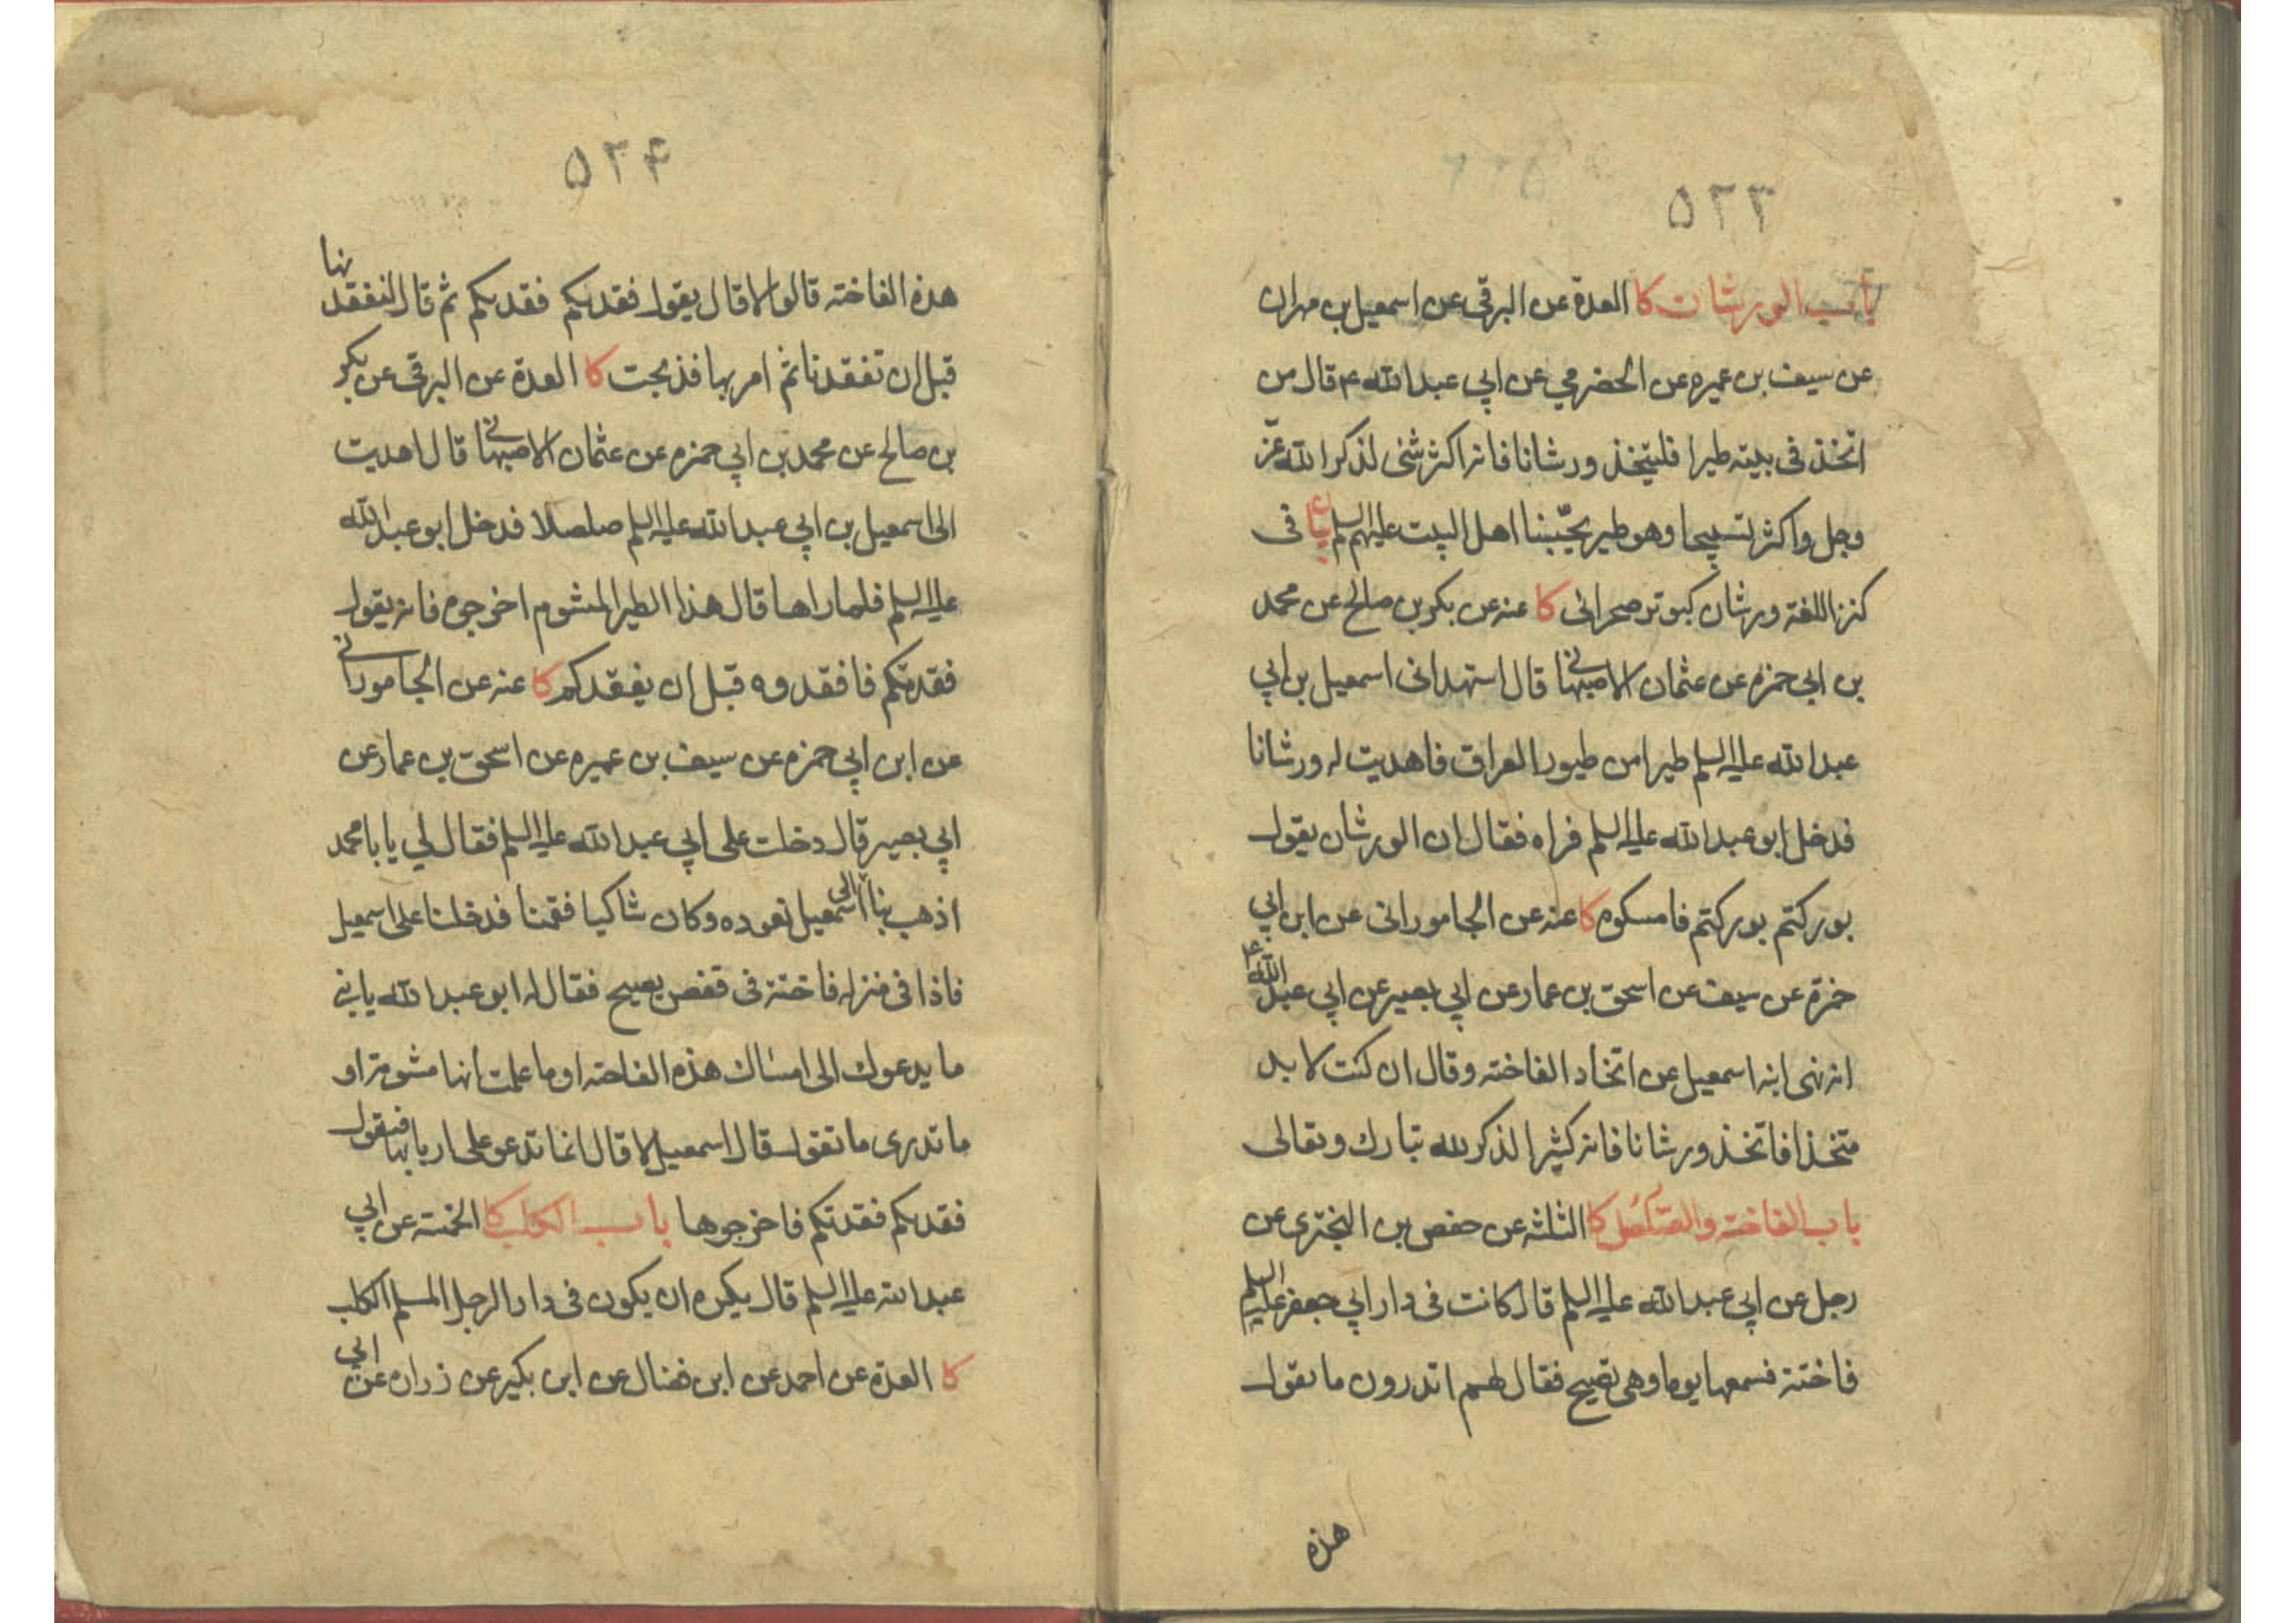 ۵۲۳
باب الورشان كا العدة عن البرقى عن اسمعيل بن مهران
عن سيف بن عميره عن الحضرمي عن ابي عبد الله ع قال من
اتخذ فى بيته طيرا فليتخذ ورشانا فانه اكثر شئى لذكر الله عزّ
وجل واكثر تسبيحا وهو طير يحبّنا اهل البيت عليهم السلم فى
كنز اللغة ورشان كبوتر صحرائى كا عنه عن بكر بن صالح عن محمد
بن ابي حمزه عن عثمان الاصبهانى قال استهدانى اسمعيل بن ابي
عبد الله عليه السلم طيرا من طيور العراق فاهديت له ورشانا
فدخل ابو عبد الله عليه السلم فراه فقال ان الورشان يقول
بوركتم بوركتم فامسكوه كا عنه عن الجامورانى عن ابن ابي
حمزة عن سيف عن اسحق بن عمار عن ابي بصير عن ابي عبد الله ع
انه نهى ابنه اسمعيل عن اتخاد الفاخته وقال ان كنت لا بد
متخذا فاتخذ ورشانا فانه كثير الذكر لله تبارك وتعالى
باب الفاخته والصلصل كا الثلثه عن حفص بن البخترى عن
رجل عن ابي عبد الله عليه السلم قال كانت فى دار ابي جعفر عليه السلم
فاختة فسمعها يوما وهى تصيح فقال لهم اتدرون ما تقول
هذه
۵۲۴
هذه الفاخته قالوا لا قال يقول فقدتكم فقدتكم ثم قال لنفقدنها
قبل ان تفقدنا ثم امر بها فذبحت كا العدة عن البرقى عن بكر
بن صالح عن محمد بن ابي حمزه عن عثمان الاصبهانى قال اهديت
الى اسمعيل بن ابي عبد الله عليه السلم صلصلا فدخل ابو عبد الله
عليه السلم فلما راها قال هذا الطير المشوم اخرجوه فانه يقول
فقدتكم فافقدوه قبل ان يفقدكم كا عنه عن الجامورانى
عن ابن ابي حمزه عن سيف بن عميره عن اسحق بن عمار عن
ابي بصير قال دخلت على ابي عبد الله عليه السلم فقال لي يا با محمد
اذهب بنا الى اسمعيل نعوده وكان شاكيا فقمنا فدخلنا على اسمعيل
فاذا فى منزله فاختة فى قفص يصيح فقال له ابو عبد الله يا بنى
ما يدعوك الى امساك هذه الفاخته او ما علمت انها مشومة او
ما تدرى ما تقول قال اسمعيل لا قال انما تدعو على اربابها فيقول
فقدتكم فقدتكم فاخرجوها باب الكلب كا الخمسة عن ابي
عبد الله عليه السلم قال يكره ان يكون فى دار الرجل المسلم الكلب
كا العدة عن احمد عن ابن فضال عن ابن بكير عن زراره عن ابي